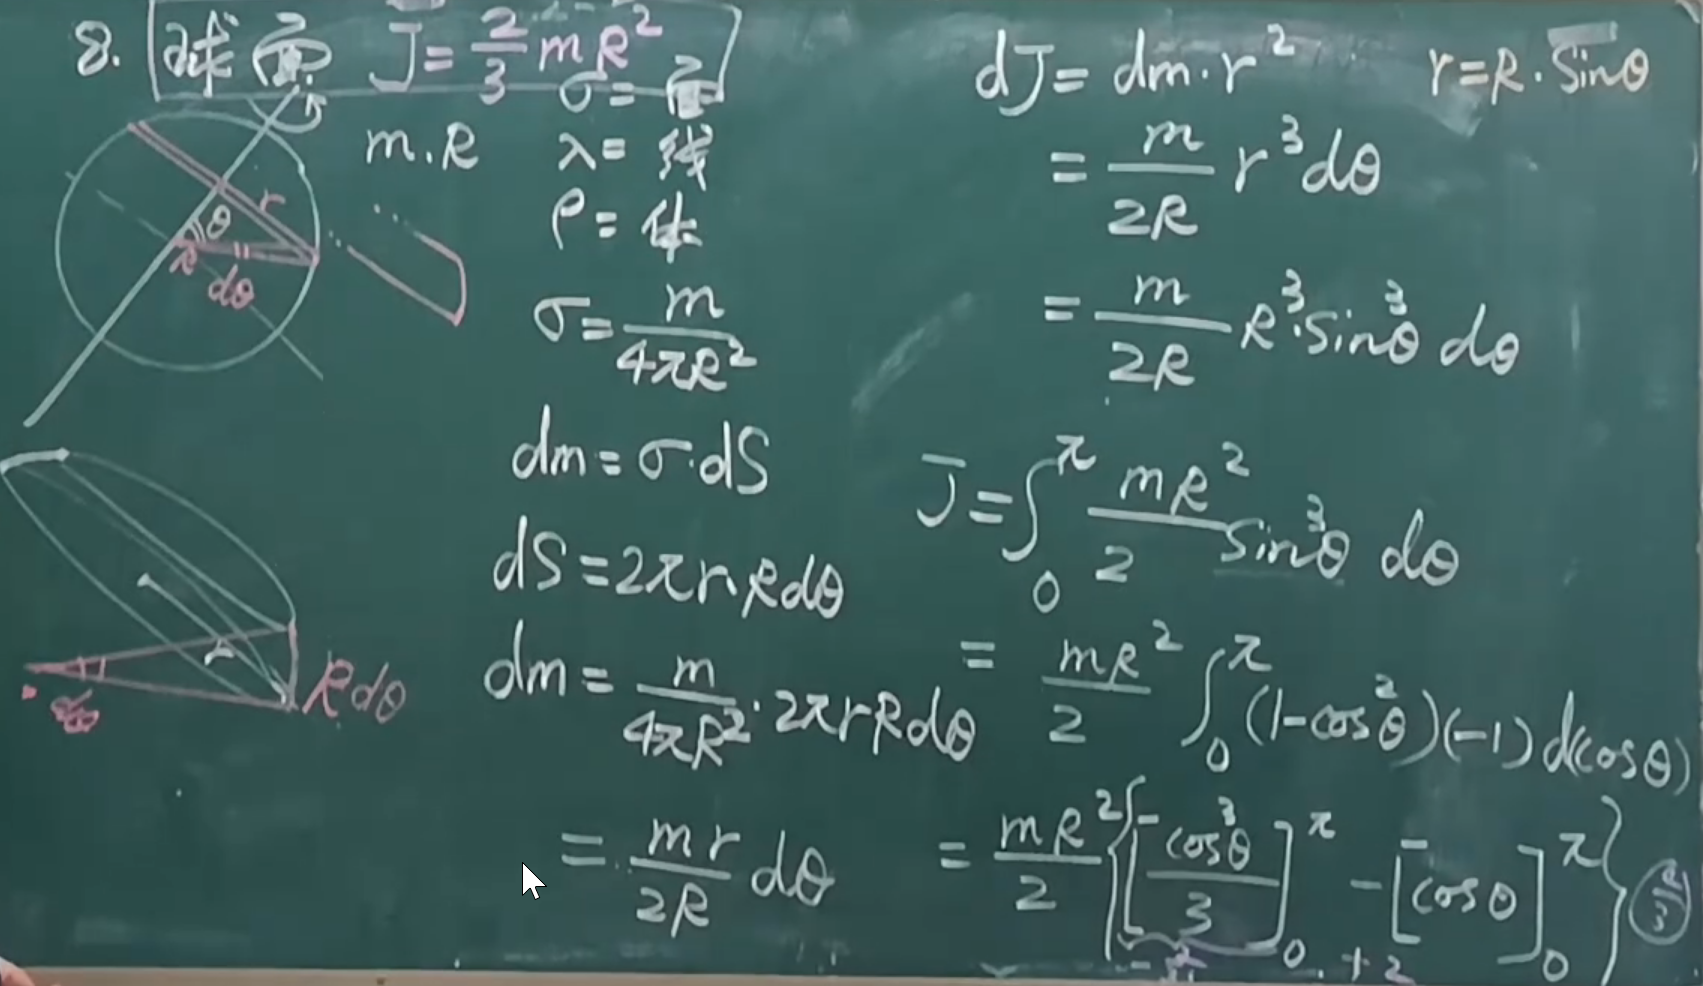 8. 球面 J = 2/3 mR²
m.R
σ = 面
λ = 线
ρ = 体
θ
r
R
dθ
σ = m/4πR²
dm = σ·dS
dS = 2πr·Rdθ
dm = m/4πR² · 2πrRdθ
= mr/2R dθ
dθ
Rdθ
dJ = dm·r² r = R·Sinθ
= m/2R r³dθ
= m/2R R³·Sin³θ dθ
J = ∫₀^π mR²/2 Sin³θ dθ
= mR²/2 ∫₀^π (1-cos²θ)(-1)d(cosθ)
= mR²/2 {[cos³θ/3]₀^π - [cosθ]₀^π}
+2